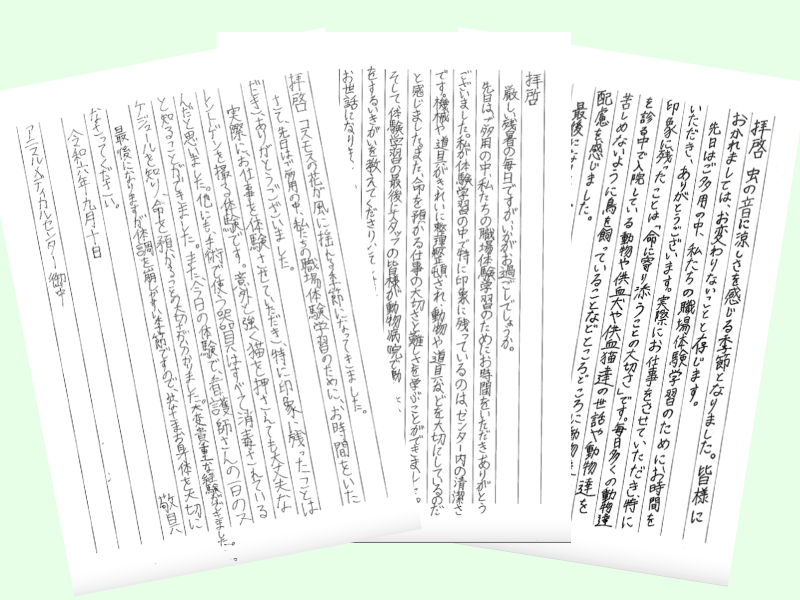 拝啓 虫の音に涼しさを感じる季節となりました。皆様に
おかれましては、お変わりないことと存じます。
先日はご多用の中、私たちの職場体験学習のためにお時間を
いただき、ありがとうございます。実際にお仕事をさせていただき、特に
印象に残ったことは「命に寄り添うことの大切さ」です。毎日多くの動物達
を診る中で、院している動物や供血犬や供血猫達の世話や動物達を
苦しめないように鳥を飼っていることなどところどころに動物
配慮を感じました。
最後に
拝啓
厳しい残暑の毎日ですがいかがお過ごしでしょうか。
先日はご多用の中、私たちの職場体験学習のためにお時間をいただきありがとう
ございました。私が体験学習の中で特に印象に残っているのは、センター内の清潔さ
です。機械や道具がきれいに整理整頓され、動物や道具などを大切にしているのだ
と感じました。また、命を預かる仕事の大切さと難しさを学ぶことができました。
そして、体験学習の最後にスタッフの皆様が動物病院で働
をするいきがいを教えてくださり
お世話になりま
拝啓 コスモスの花が風に揺れる季節になってきました。
さて、先日はご多用の中、私たちの職場体験学習のために、お時間をいた
だきありがとうございました。
実際にお仕事を体験させていただき、特に印象に残ったことは
レントゲンを撮る体験です。意外と強く猫を押さえても大丈夫な
んだと思いました。他にも、手術で使う器具はすべて消毒されている
と知ることができました。また、今日の体験で、看護師さんの一日のス
ケジュールを知り、命を預かることの大切さが分かりました。大変貴重な経験ができました。
最後になりますが体調を崩しやすい季節ですので、どうぞお身体を大切に
なさってください。
敬具
令和六年九月十日
アニマルメディカルセンター 御中